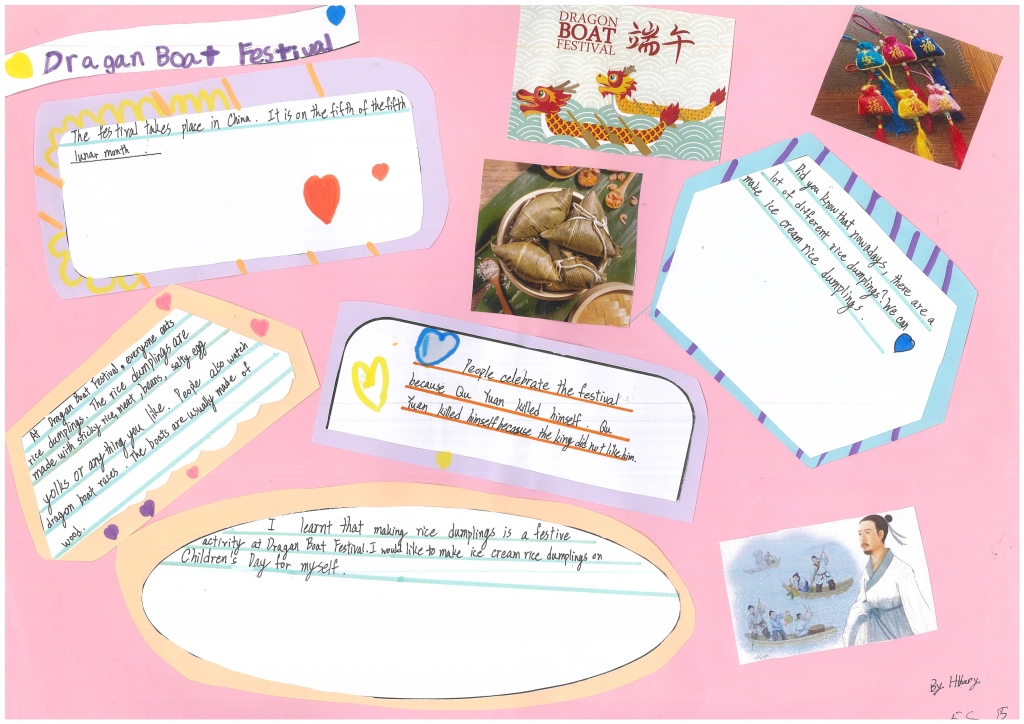 Dragan Boat Festival
DRAGON
BOAT
FESTIVAL
端午
The festival takes place in China. It is on the fifth of the fifth
lunar month.
Did you know that nowadays, there are a
lot of different rice dumplings? We can
make ice cream rice dumplings.
At Dragan Boat Festival, everyone eats
rice dumplings. The rice dumplings are
made with sticky rice, meat, beans, salty egg
yolks or anything you like. People also watch
dragon boat races. The boats are usually made of
wood.
People celebrate the festival
because Qu Yuan killed himself. Qu
Yuan killed himself because the king did not like him.
I learnt that making rice dumplings is a festive
activity at Dragan Boat Festival. I would like to make ice cream rice dumplings on
Children's Day for myself.
By
15